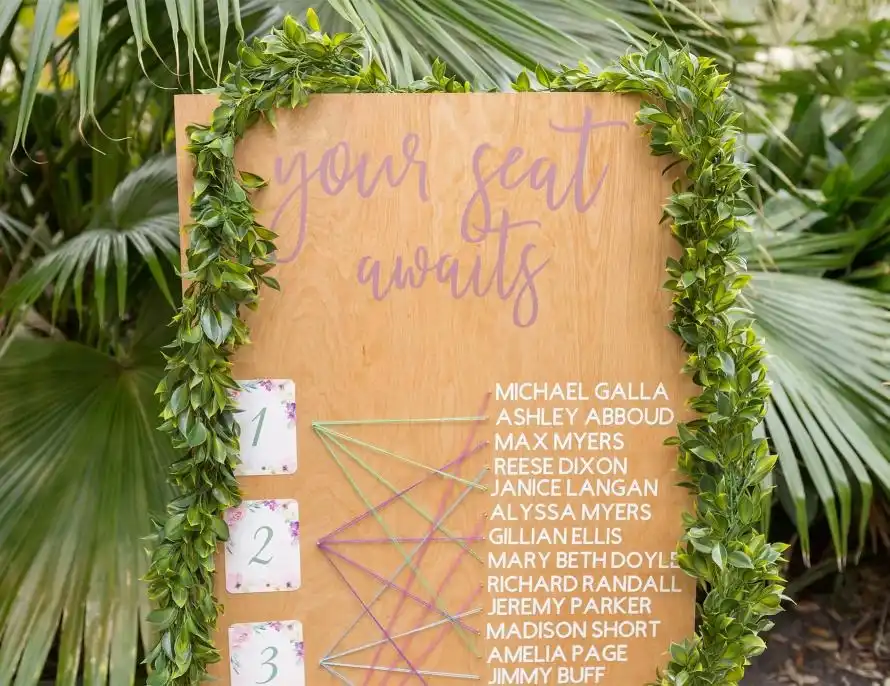 your seat
awaits
1
2
3
MICHAEL GALLA
ASHLEY ABBOUD
MAX MYERS
REESE DIXON
JANICE LANGAN
ALYSSA MYERS
GILLIAN ELLIS
MARY BETH DOYLE
RICHARD RANDALL
JEREMY PARKER
MADISON SHORT
AMELIA PAGE
JIMMY BUFF